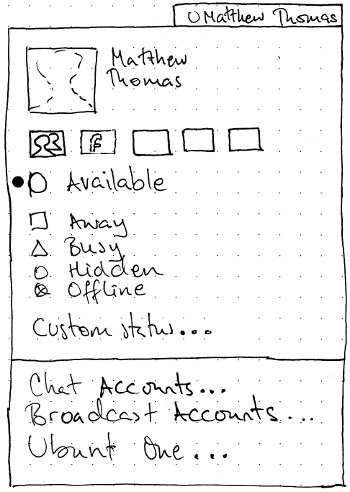 Matthew Thomas
Matthew
Thomas
f
Available
Away
Busy
Hidden
Offline
Custom status...
Chat Accounts...
Broadcast Accounts...
Ubunt One...